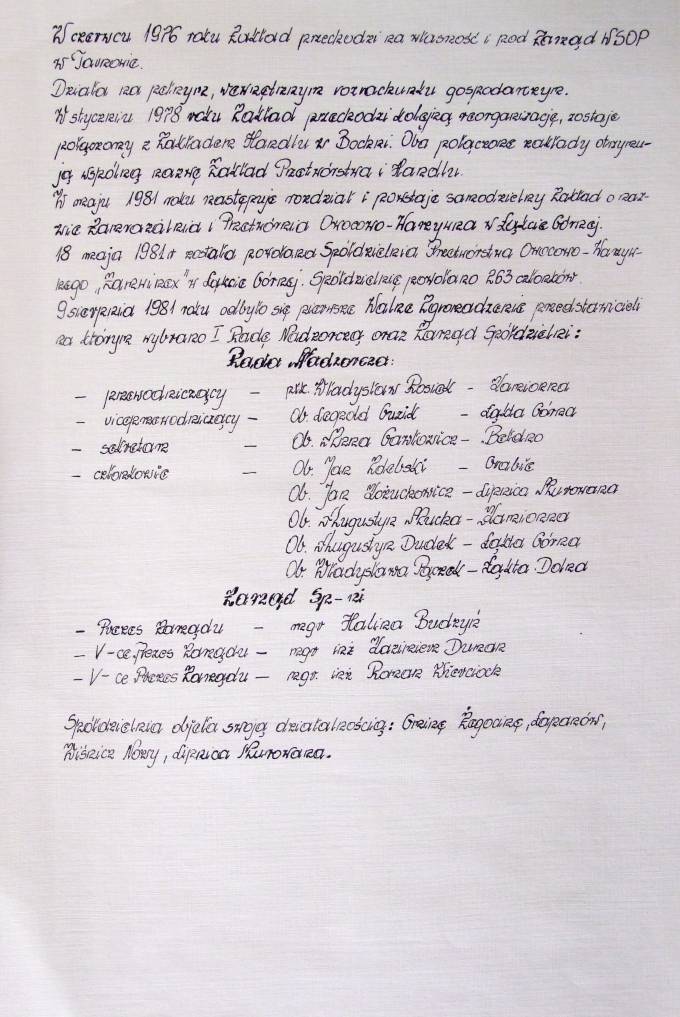 W czerwcu 1976 roku Zakład przechodzi na własność i pod Zarząd WSOP
w Tarnowie.
Działa na pełnym, wewnętrznym rozrachunku gospodarczym.
W styczniu 1978 roku Zakład przechodzi kolejną reorganizację, zostaje
połączony z Zakładem Handlu w Bochni. Oba połączone zakłady otrzymu-
ją wspólną nazwę Zakład Przetwórstwa i Handlu.
W maju 1981 roku następuje rozdział i powstaje samodzielny Zakład o naz-
wie Zamrażalnia i Przetwórnia Owocowo-Warzywna w Łąkcie Górnej.
18 maja 1981 r została powołana Spółdzielnia Przetwórstwa Owocowo-Warzyw-
nego „Zamwinex" w Łąkcie Górnej. Spółdzielnię powołano 263 członków.
9 sierpnia 1981 roku odbyło się pierwsze Walne Zgromadzenie przedstawicieli
na którym wybrano I Radę Nadzorczą oraz Zarząd Spółdzielni:
Rada Nadzorcza:
- przewodniczący - płk. Władysław Rosiek - Kamionna
- viceprzewodniczący - Ob. Leopold Guzik - Łąkta Górna
- sekretarz - Ob. Anna Gawłowicz - Bełdno
- członkowie - Ob. Jan Zdebski - Grabie
Ob. Jan Kożuchowicz - Lipnica Murowana
Ob. Augustyn Mucha - Kamionna
Ob. Augustyn Dudek - Łąkta Górna
Ob. Władysława Pączek - Łąkta Dolna
Zarząd Sp-ni
- Prezes Zarządu - mgr Halina Budzyń
- V-ce Prezes Zarządu - mgr inż Kazimierz Dunar
- V-ce Prezes Zarządu - mgr. inż Roman Wierciock
Spółdzielnia objęła swoją działalnością: Gminę Żegocinę, Łapanów,
Wiśnicz Nowy, Lipnica Murowana.